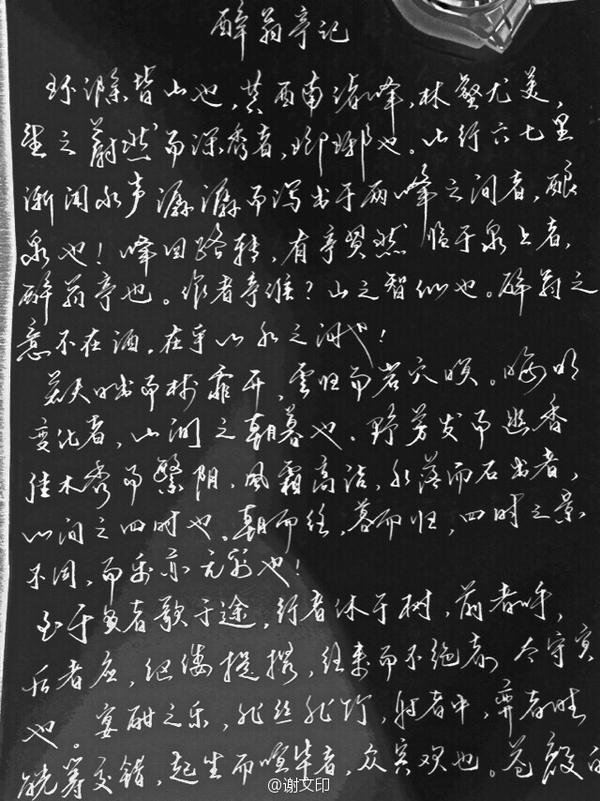 醉翁亭记
环滁皆山也,其西南诸峰,林壑尤美,
望之蔚然而深秀者,琅琊也。山行六七里
渐闻水声潺潺而泻出于两峰之间者,酿
泉也!峰回路转,有亭翼然临于泉上者,
醉翁亭也。作者亭谁?山之智仙也。醉翁之
意不在酒,在乎山水之间也!
若夫日出而林霏开,云归而岩穴暝。晦明
变化者,山间之朝暮也。野芳发而幽香
佳木秀而繁阴,风霜高洁,水落而石出者,
山间之四时也。朝而往,暮而归,四时之景
不同,而乐亦无穷也!
至于负者歌于途,行者休于树,前者呼,
后者应,伛偻提携,往来而不绝者,
也。宴酣之乐,非丝非竹,射者中,弈者胜
觥筹交错,起坐而喧哗者,众宾欢也。苍颜白
@谢文印